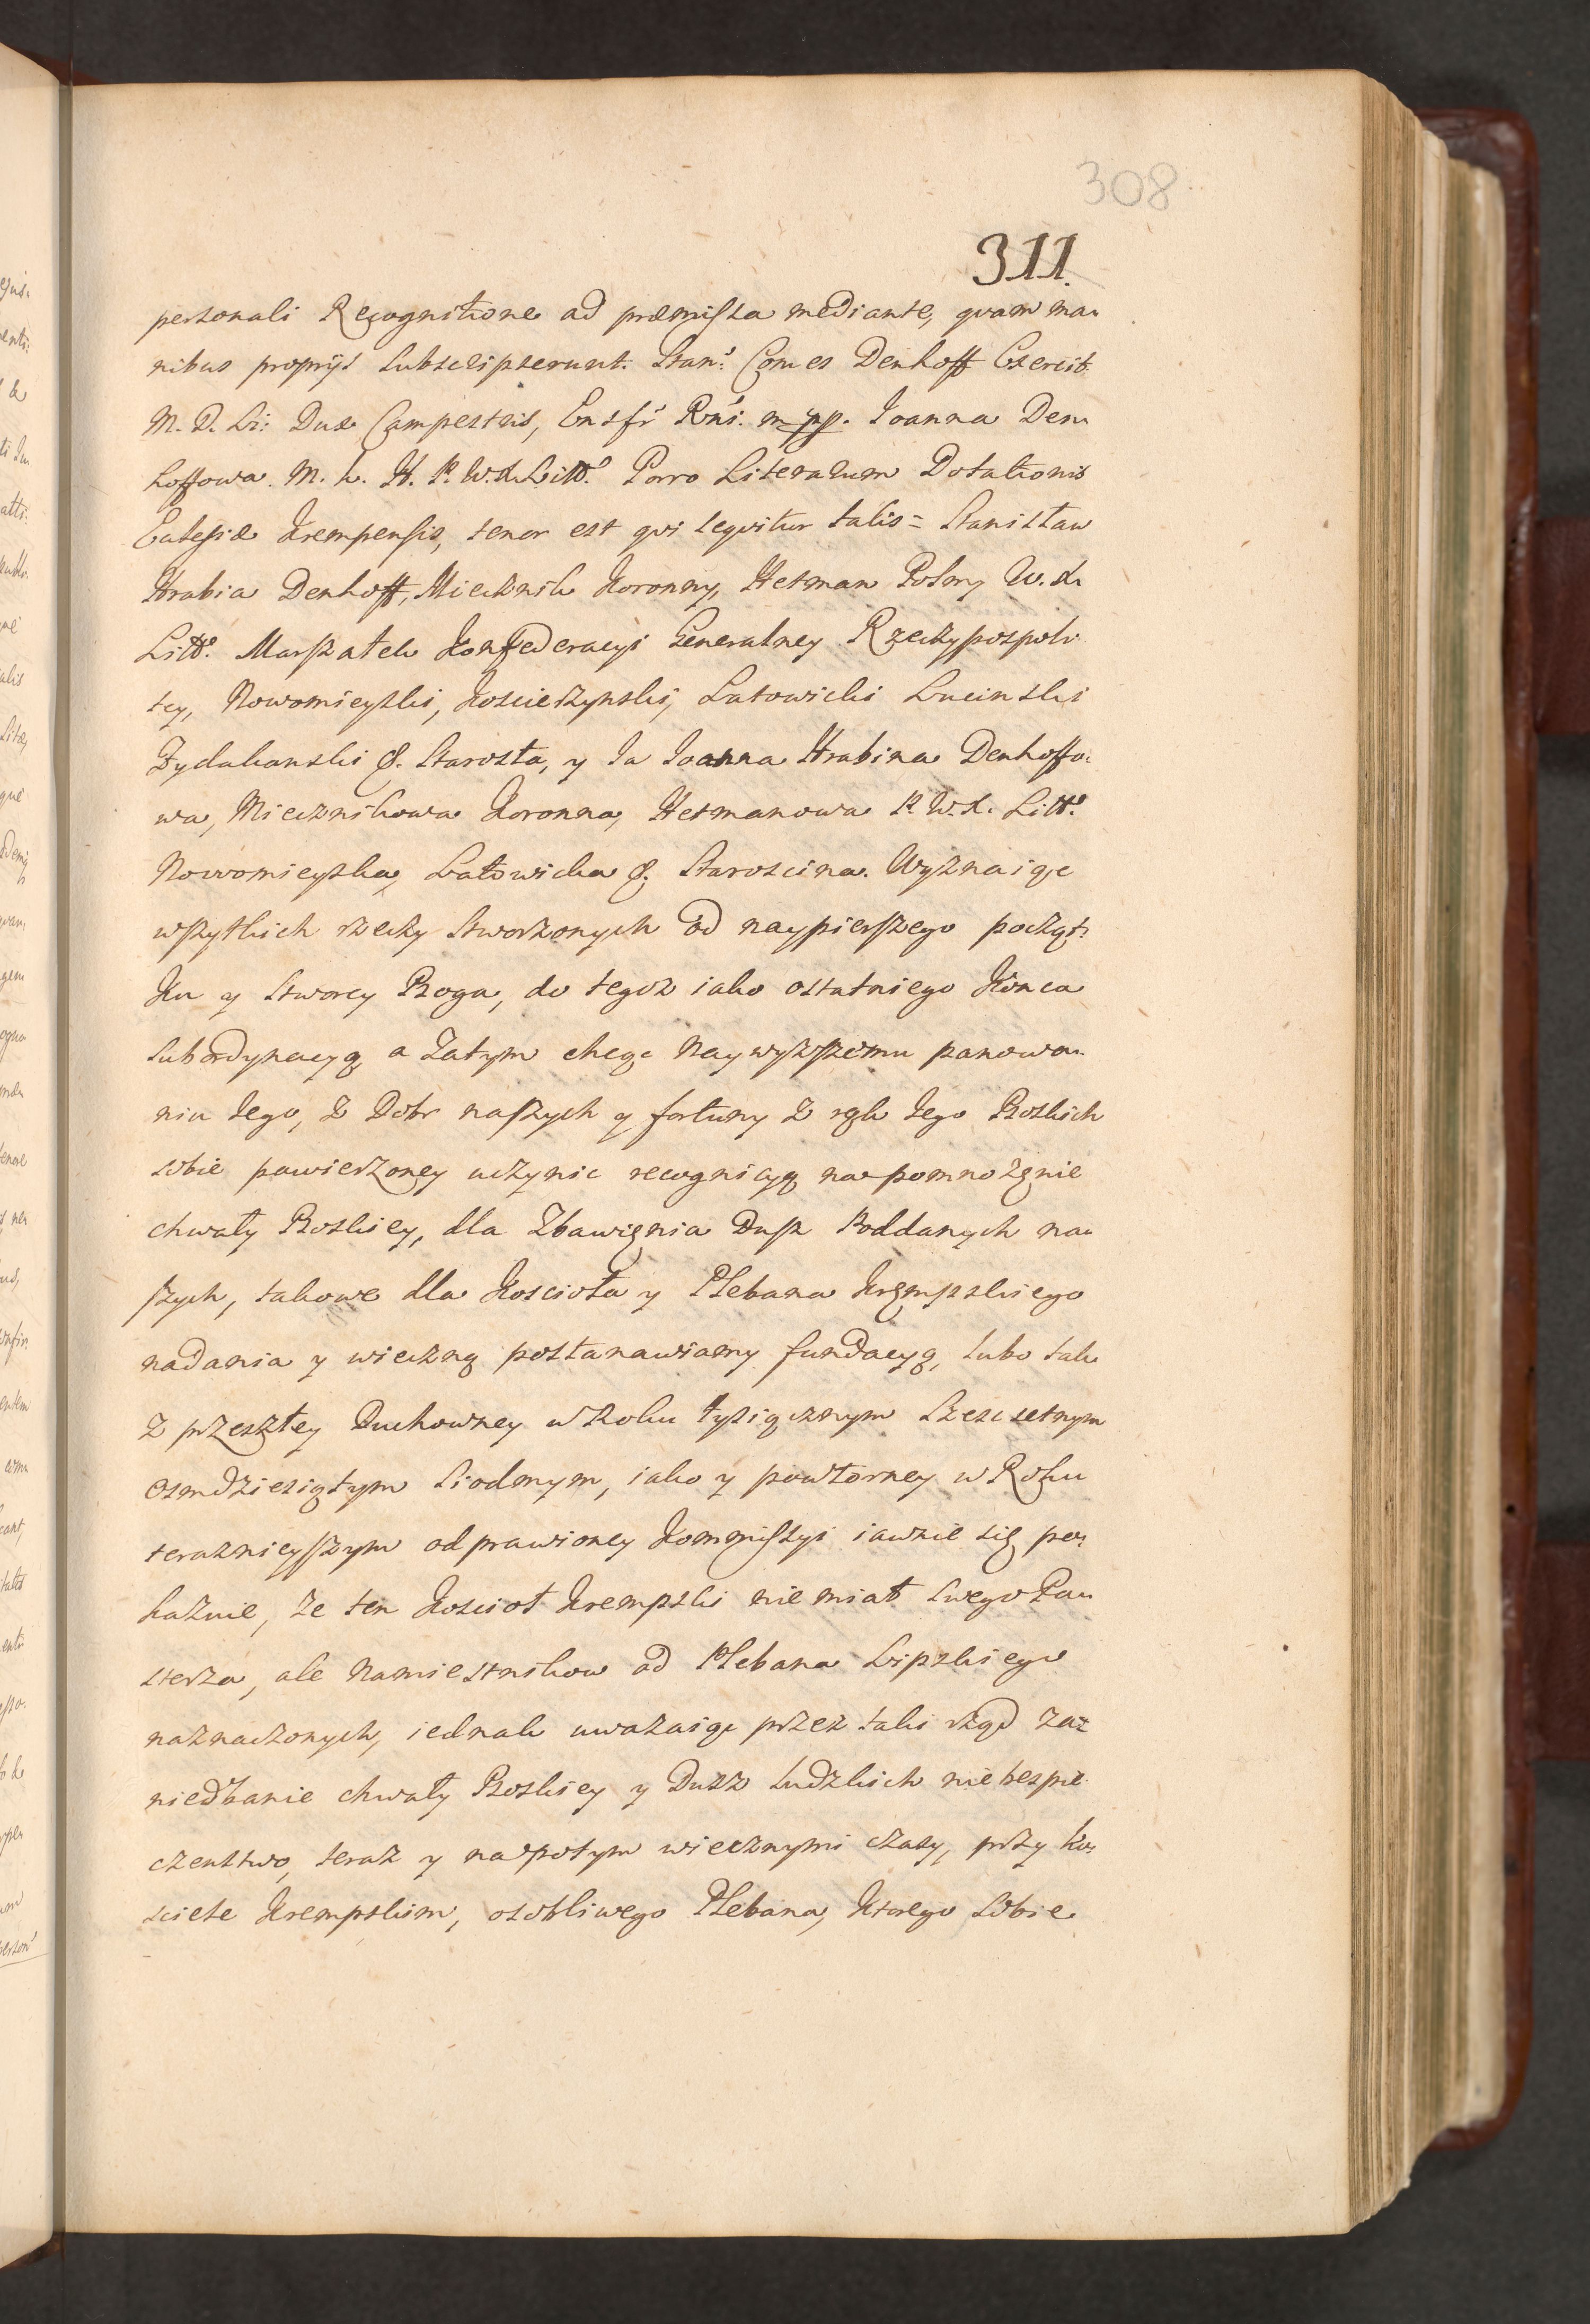 308
311.
personali Recognitione ad præmissa mediante, quam ma-
nibus proprijs subscripserunt. Stan: Comes Denhoff Exercit:
M. D. Li: Dux Campestris, Ensfr Rni: mpp. Joanna Den-
hoffowa. M. k. H. P. W. X. Litt: Porro Literarum Dotationis
Eclesiæ Krempensis, tenor est qui sequitur talis = Stanisław
Hrabia Denhoff, Miecznik Koronny, Hetman Polny W. X.
Litt: Marszałek Konfederacyi Generalney Rzeczypospoli-
tey, Nowomieyski, Koscierzynski, Latowicki Lucinski
Zydakanski &. Starosta, y Ja Joanna Hrabina Denhoffo-
wa, Miecznikowa Koronna, Hetmanowa P. W. X. Litt:
Nowomieyska, Latowicka &. Staroscina. Wyznaiąc
wszytkich rzeczy stworzonych od naypierszego począt-
ku y stworcy Boga, do tegoz iako ostatniego Konca
subordynacyą a zatym chcąc Naywyzszemu panowa-
niu Jego, z Dobr naszych y fortuny z rąk Jego Boskich
sobie powierzoney uczynic recognicyą na pomnozęnie
chwały Boskiey, dla Zbawięnia Dusz Poddanych na-
szych, takowe dla Koscioła y Plebana Kręmpskiego
nadania y wieczną postanawiamy fundacyą, lubo tak
z przeszłey Duchowney w Roku tysiącznym szescsetnym
osmdziesiątym siodmym, iako y powtorney w Roku
teraznieyszym odprawioney Kommissyi iawnie się po-
kazuie, ze ten Kosciot Krempski nie miał swego Pa-
sterza, ale Namiestnikow od Plebana Lipskiego
naznaczonych, iednak uwazaiąc przez taki rząd za-
niedbanie chwały Boskiey y Dusz ludzkich niebespie-
czenstwo, teraz y na potym wiecznymi czasy, przy Ko-
sciele Krempskim, osobliwego Plebana, Ktorego sobie